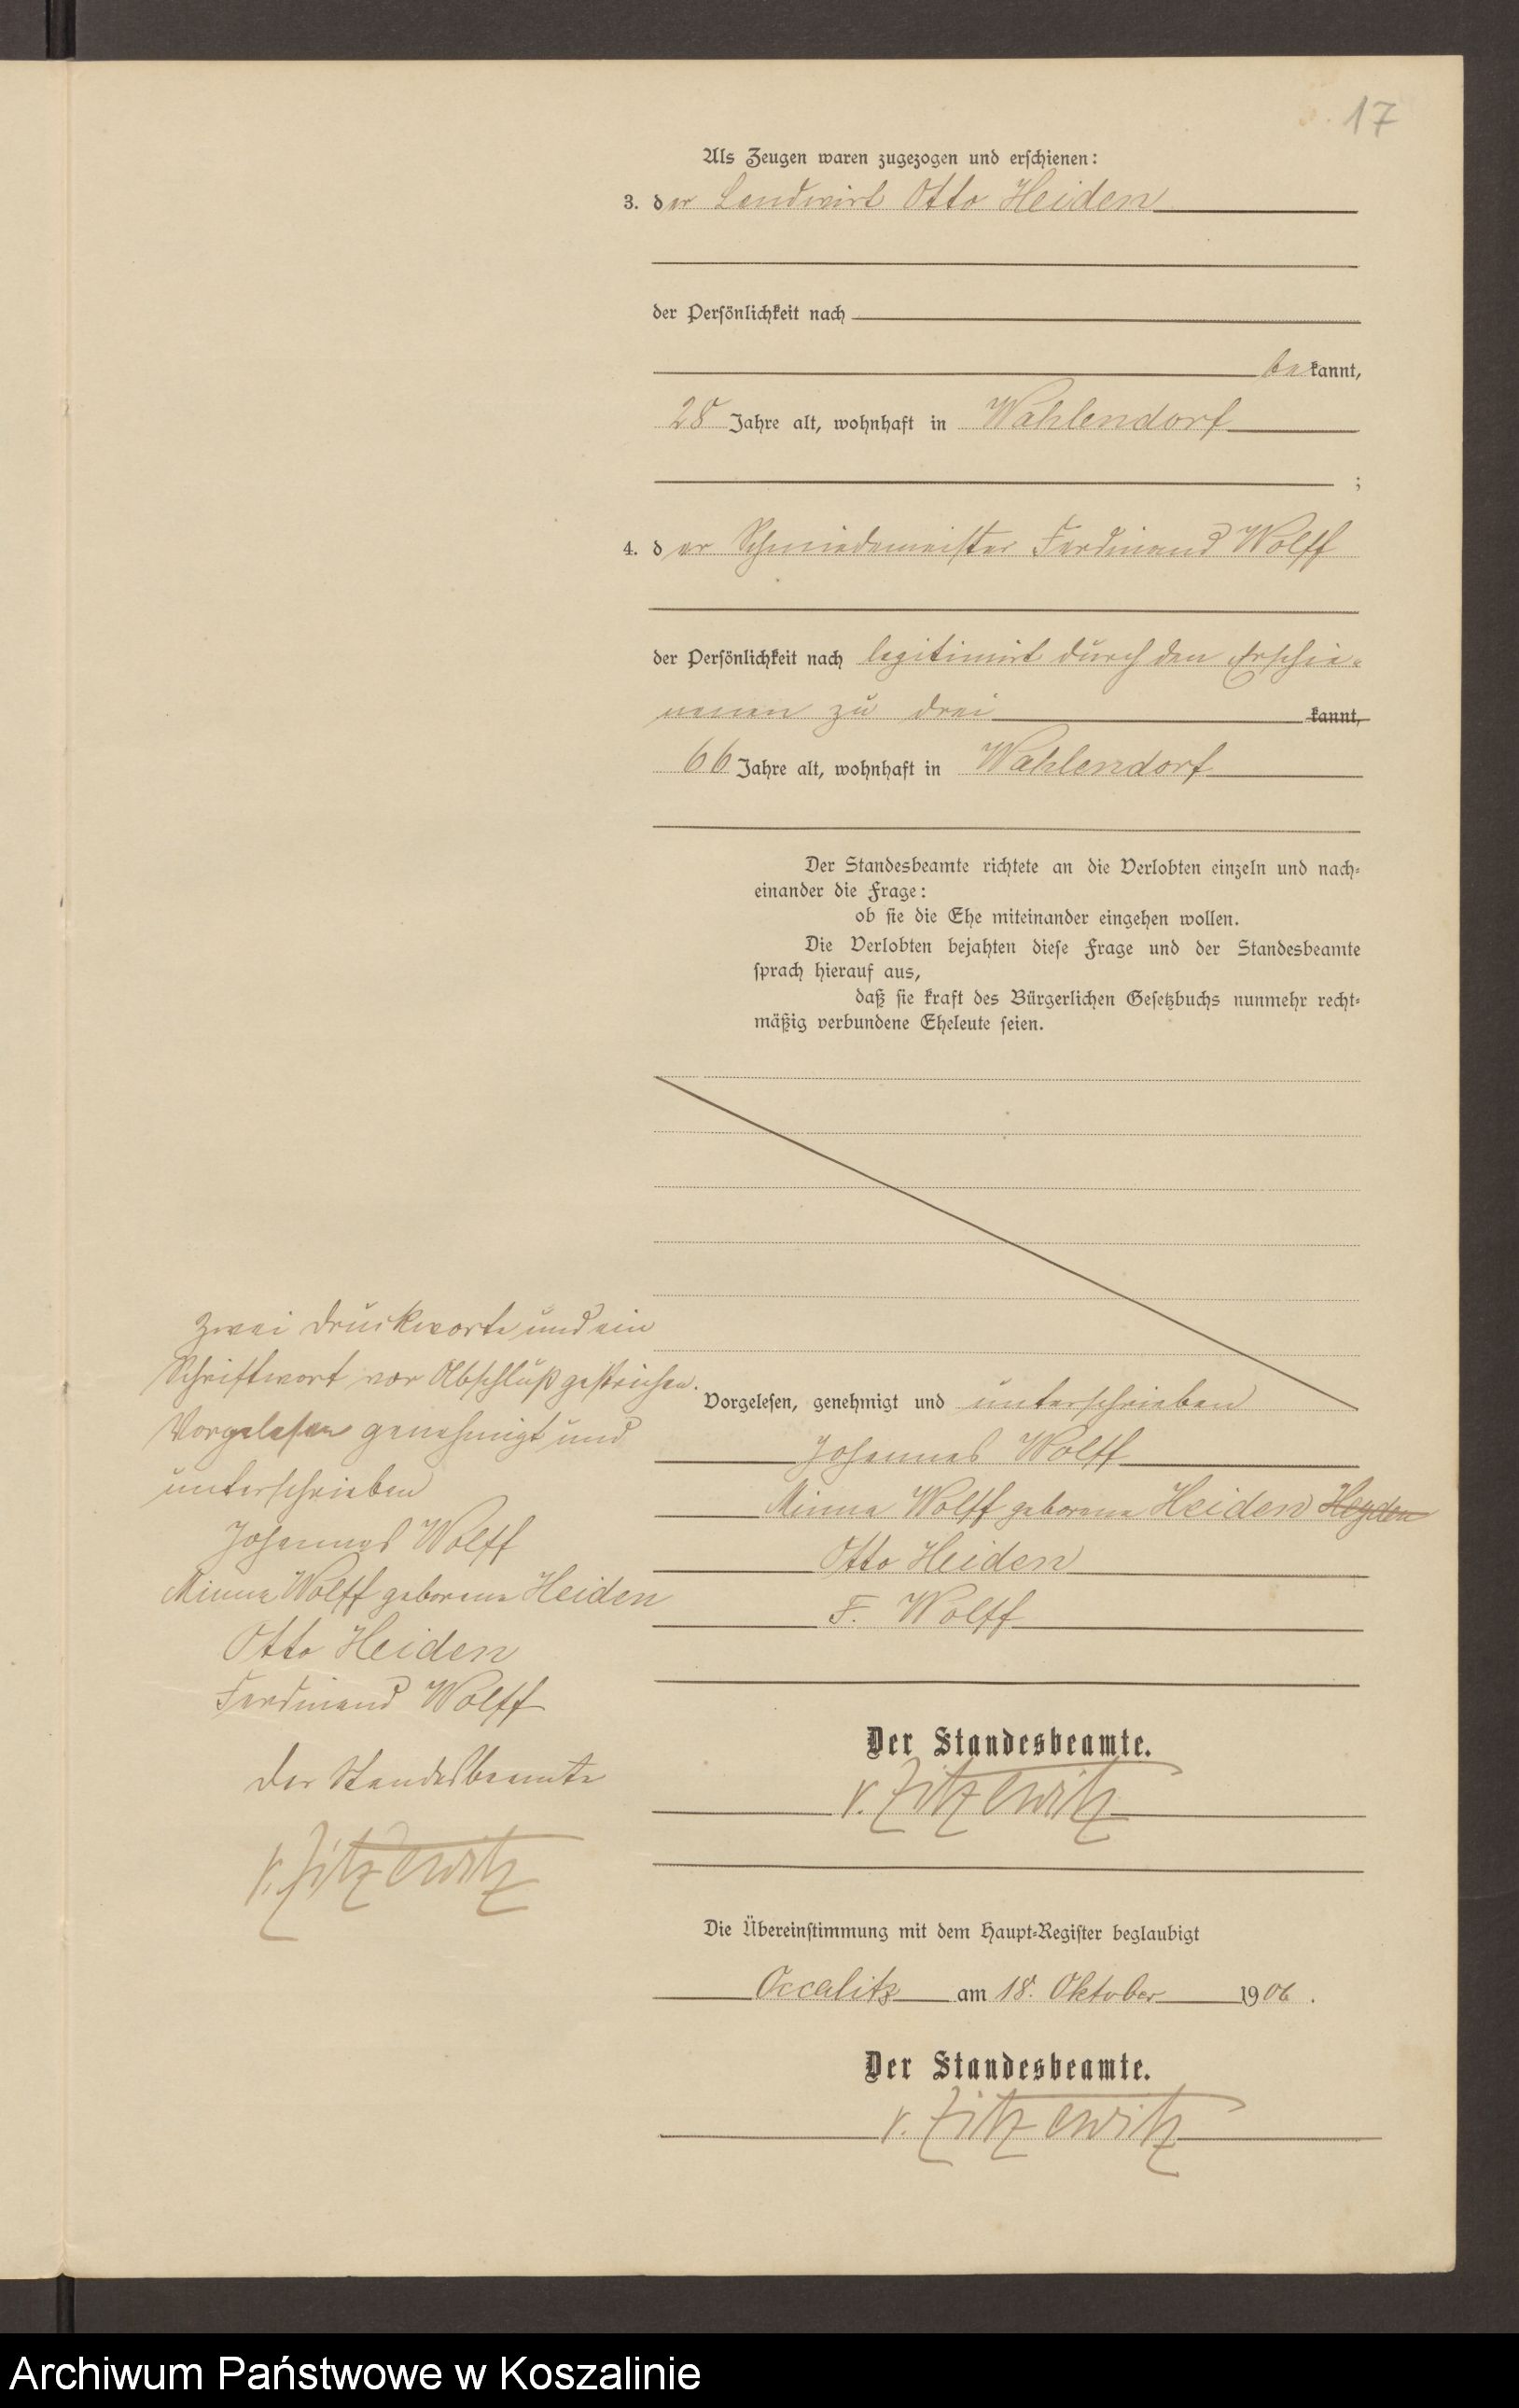 17
Als Zeugen waren zugezogen und erschienen:
3. der Landwirt Otto Heiden
der Persönlichkeit nach
bekannt,
28 Jahre alt, wohnhaft in Wahlendorf
;
4. der Schmiedemeister Ferdinand Wolff
der Persönlichkeit nach legitimirt durch den Erschie-
nenen zu drei kannt,
66 Jahre alt, wohnhaft in Wahlendorf
Der Standesbeamte richtete an die Verlobten einzeln und nach-
einander die Frage:
ob sie die Ehe miteinander eingehen wollen.
Die Verlobten bejahten diese Frage und der Standesbeamte
sprach hierauf aus,
daß sie kraft des Bürgerlichen Gesetzbuchs nunmehr recht-
mäßig verbundene Eheleute seien.
Zwei Druckworte und ein
Schriftwort vor Abschluß gestrichen.
Vorgelesen genehmigt und
unterschrieben
Johannes Wolff
Minna Wolff geborene Heiden
Otto Heiden
Ferdinand Wolff
Der Standesbeamte
v. Zitzewitz
Vorgelesen, genehmigt und unterschrieben
Johannes Wolff
Minna Wolff geborene Heiden Heyden
Otto Heiden
F. Wolff
Der Standesbeamte.
v. Zitzewitz
Die Übereinstimmung mit dem Haupt-Register beglaubigt
Occalitz am 18. Oktober 1906.
Der Standesbeamte.
v. Zitzewitz
Archiwum Państwowe w Koszalinie